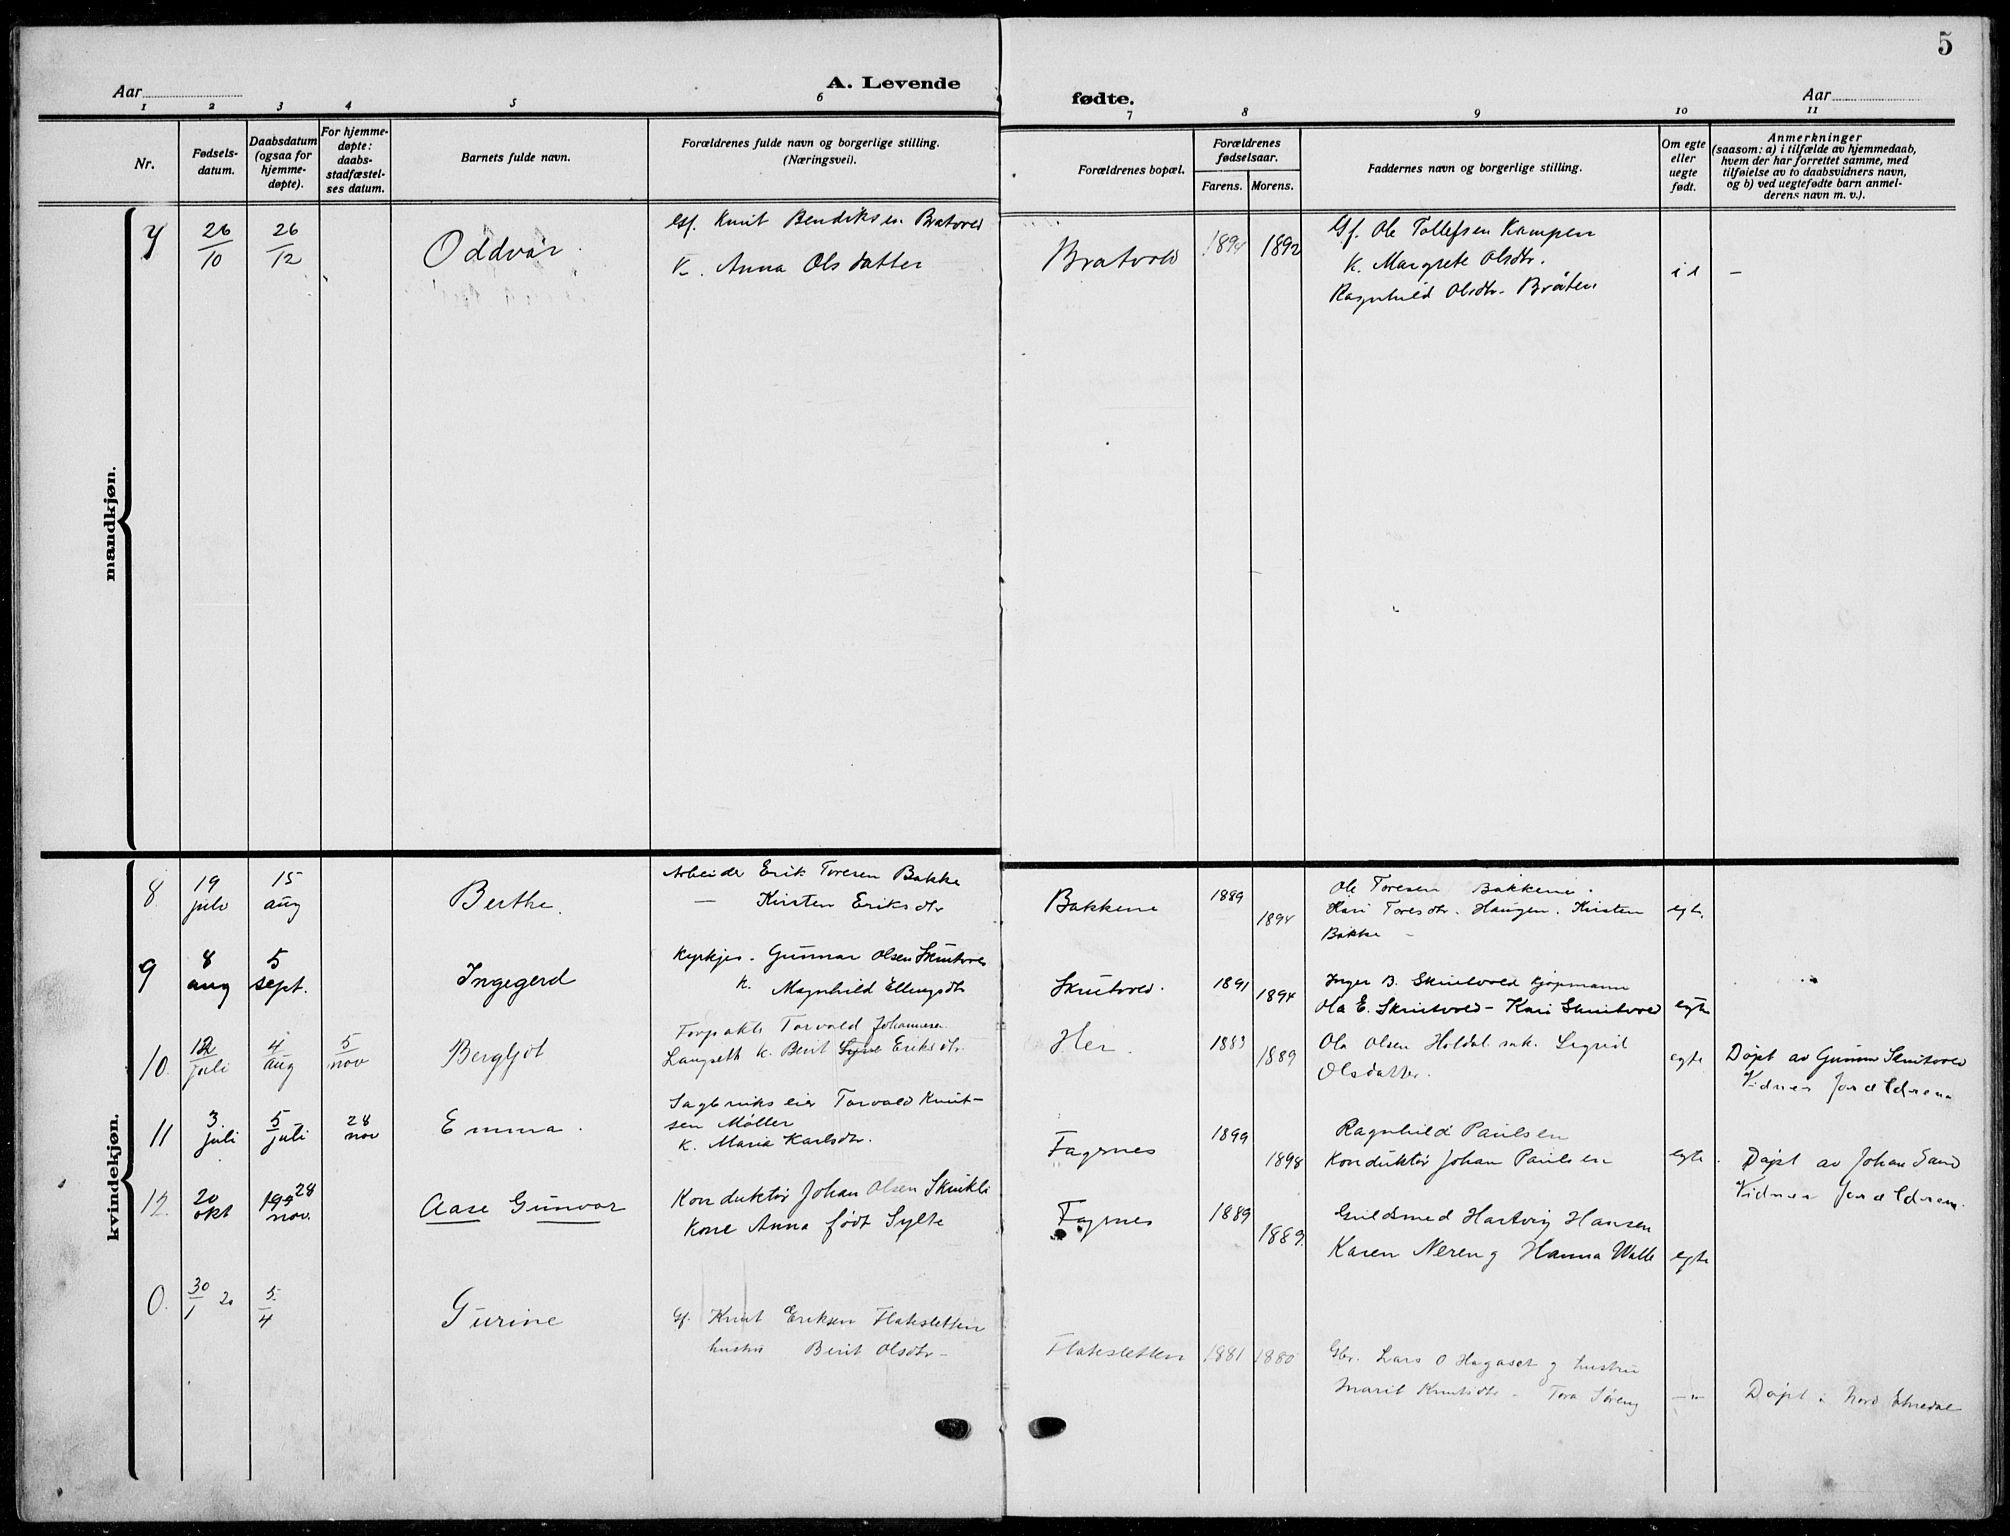 5
A. Levende
fødte.
Aar
Aar
1 2 3 4 5 6 7 8 9 10 11
Nr.
Fødsels-
datum.
Daabsdatum
(ogsaa for
hjemme-
døpte).
For hjemme-
døpte:
daabs-
stadfæstel-
ses datum.
Barnets fulde navn.
Forældrenes fulde navn og borgerlige stilling.
(Næringsvei).
Forældrenes bopæl.
Forældrenes
fødselsaar.
Farens. Morens.
Faddernes navn og borgerlige stilling.
Om egte
eller
uegte
født.
Anmerkninger
(saasom: a) i tilfælde av hjemmedaab,
hvem der har forrettet samme, med
tilføielse av to daabsvidners navn,
og b) ved uegtefødte barn anmel-
derens navn m. v.).
mandkjøn.
26/10 26/12
Oddvar
Gf. Knut Bendiksen Bratvold
K. Anna Olsdatter
Bratvold
1894 1892
Gf. Ole Tollefsen Kampen
K. Margrete Olsdtr.
Ragnhild Olsdtr. Bråten
–
kvindekjøn.
8. 19 juli 15 aug
Berthe.
Arbeider Erik Toresen Bakke
— Kirsten Eriksdtr
Bakkene
1889 1894
Ole Toresen Bakkene.
Kari Toresdtr. Haugen. Kirsten
Bakke –
egte.
9 8 aug 5 sept.
Ingegerd
Kyrkjes. Gunnar Olsen Skrutvold
K. Magnhild Ellingsdtr
Skrutvold.
1891 1894
Inger B. Skrutvold kjøpmann
Ola E. Skrutvold – Kari Skrutvold
egte
10. 12 juli 4 aug 5 nov
Bergljot
Forpakt. Torvald Johannesen
Langseth K. Berit Eriksdtr.
Hei.
1883 1889
Ola Olsen Holdal Sigrid
Olsdatter.
egte
Døpt av Gunnar Skrutvold
Vidner foreldrene
11 3. juli 5 juli 28 nov
Emma.
Sagbrukseier Torvald Knut-
sen Møller
K. Maria Karlsdtr.
Fagernes
1899 1898
Ragnhild Paulsen
Konduktør Johan Paulsen
egte.
Døpt av Johan Sand
Vidner foreldrene.
12. 20 okt 28 nov.
Aase Gunvor
Konduktør Johan Olsen
Kone Anna født Sylte
Fagernes
1889 1889.
Guldsmed Hartvig Hansen
Karen Neren og Hanna Walle
egte
0. 30/1 20 5/4
Gurine
Gf. Knut Eriksen Flaksletten
hustru Berit Olsdtr –
Flaksletten
1881 1880
Gbr. Lars O Hagaset og hustru
Marit Knutsdtr – Tora Søreng
—"—
Døpt i Nord Etnedal